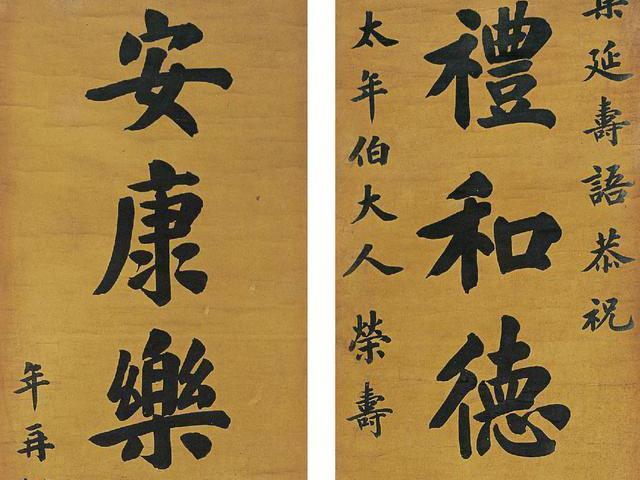 延壽語恭祝
禮和德
太年伯大人 榮壽
安康樂
年再